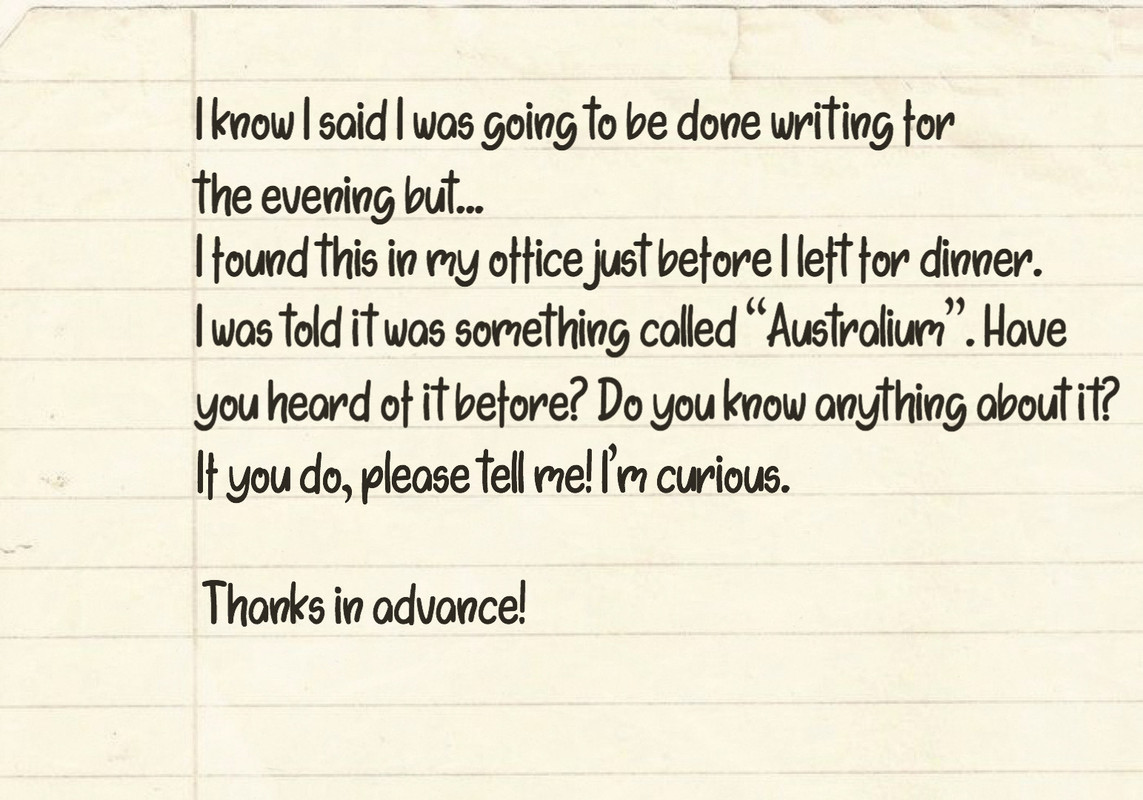 I know I said I was going to be done writing for
the evening but...
I found this in my office just before I left for dinner.
I was told it was something called “Australium”. Have
you heard of it before? Do you know anything about it?
If you do, please tell me! I’m curious.
Thanks in advance!